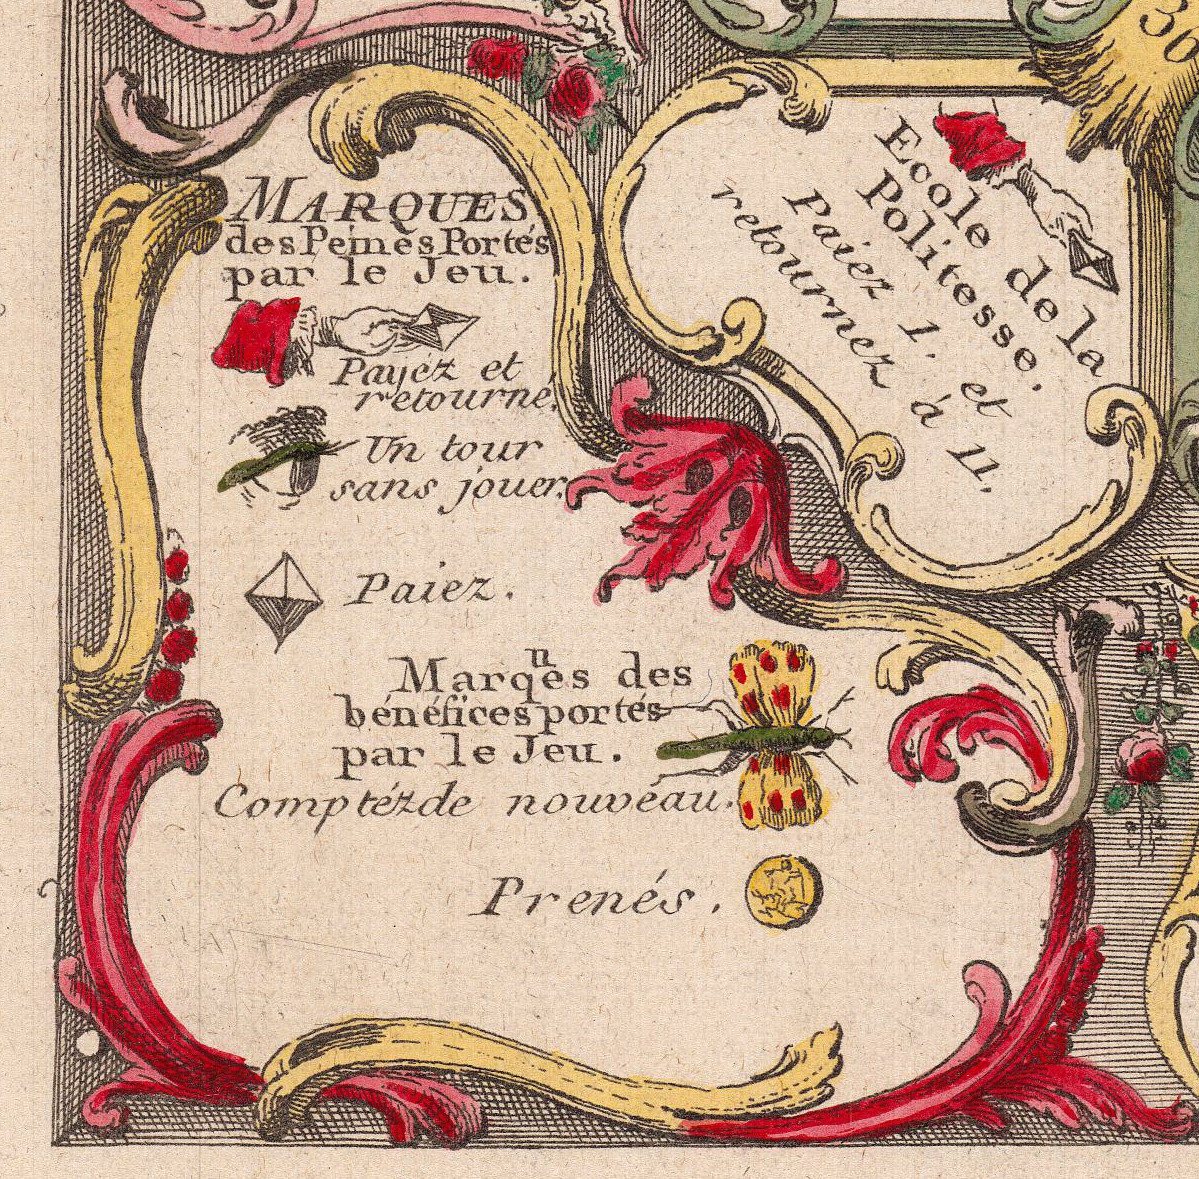 MARQUES
des Peines Portés
par le Jeu.
Payéz et
retourne.
Un tour
sans jouer.
Paiez.
Marqⁿes des
bénéfices portés
par le Jeu.
Comptéz de nouveau.
Prenés.
Ecole de la
Politesse.
Paiez 1. et
retournez à 11.
36